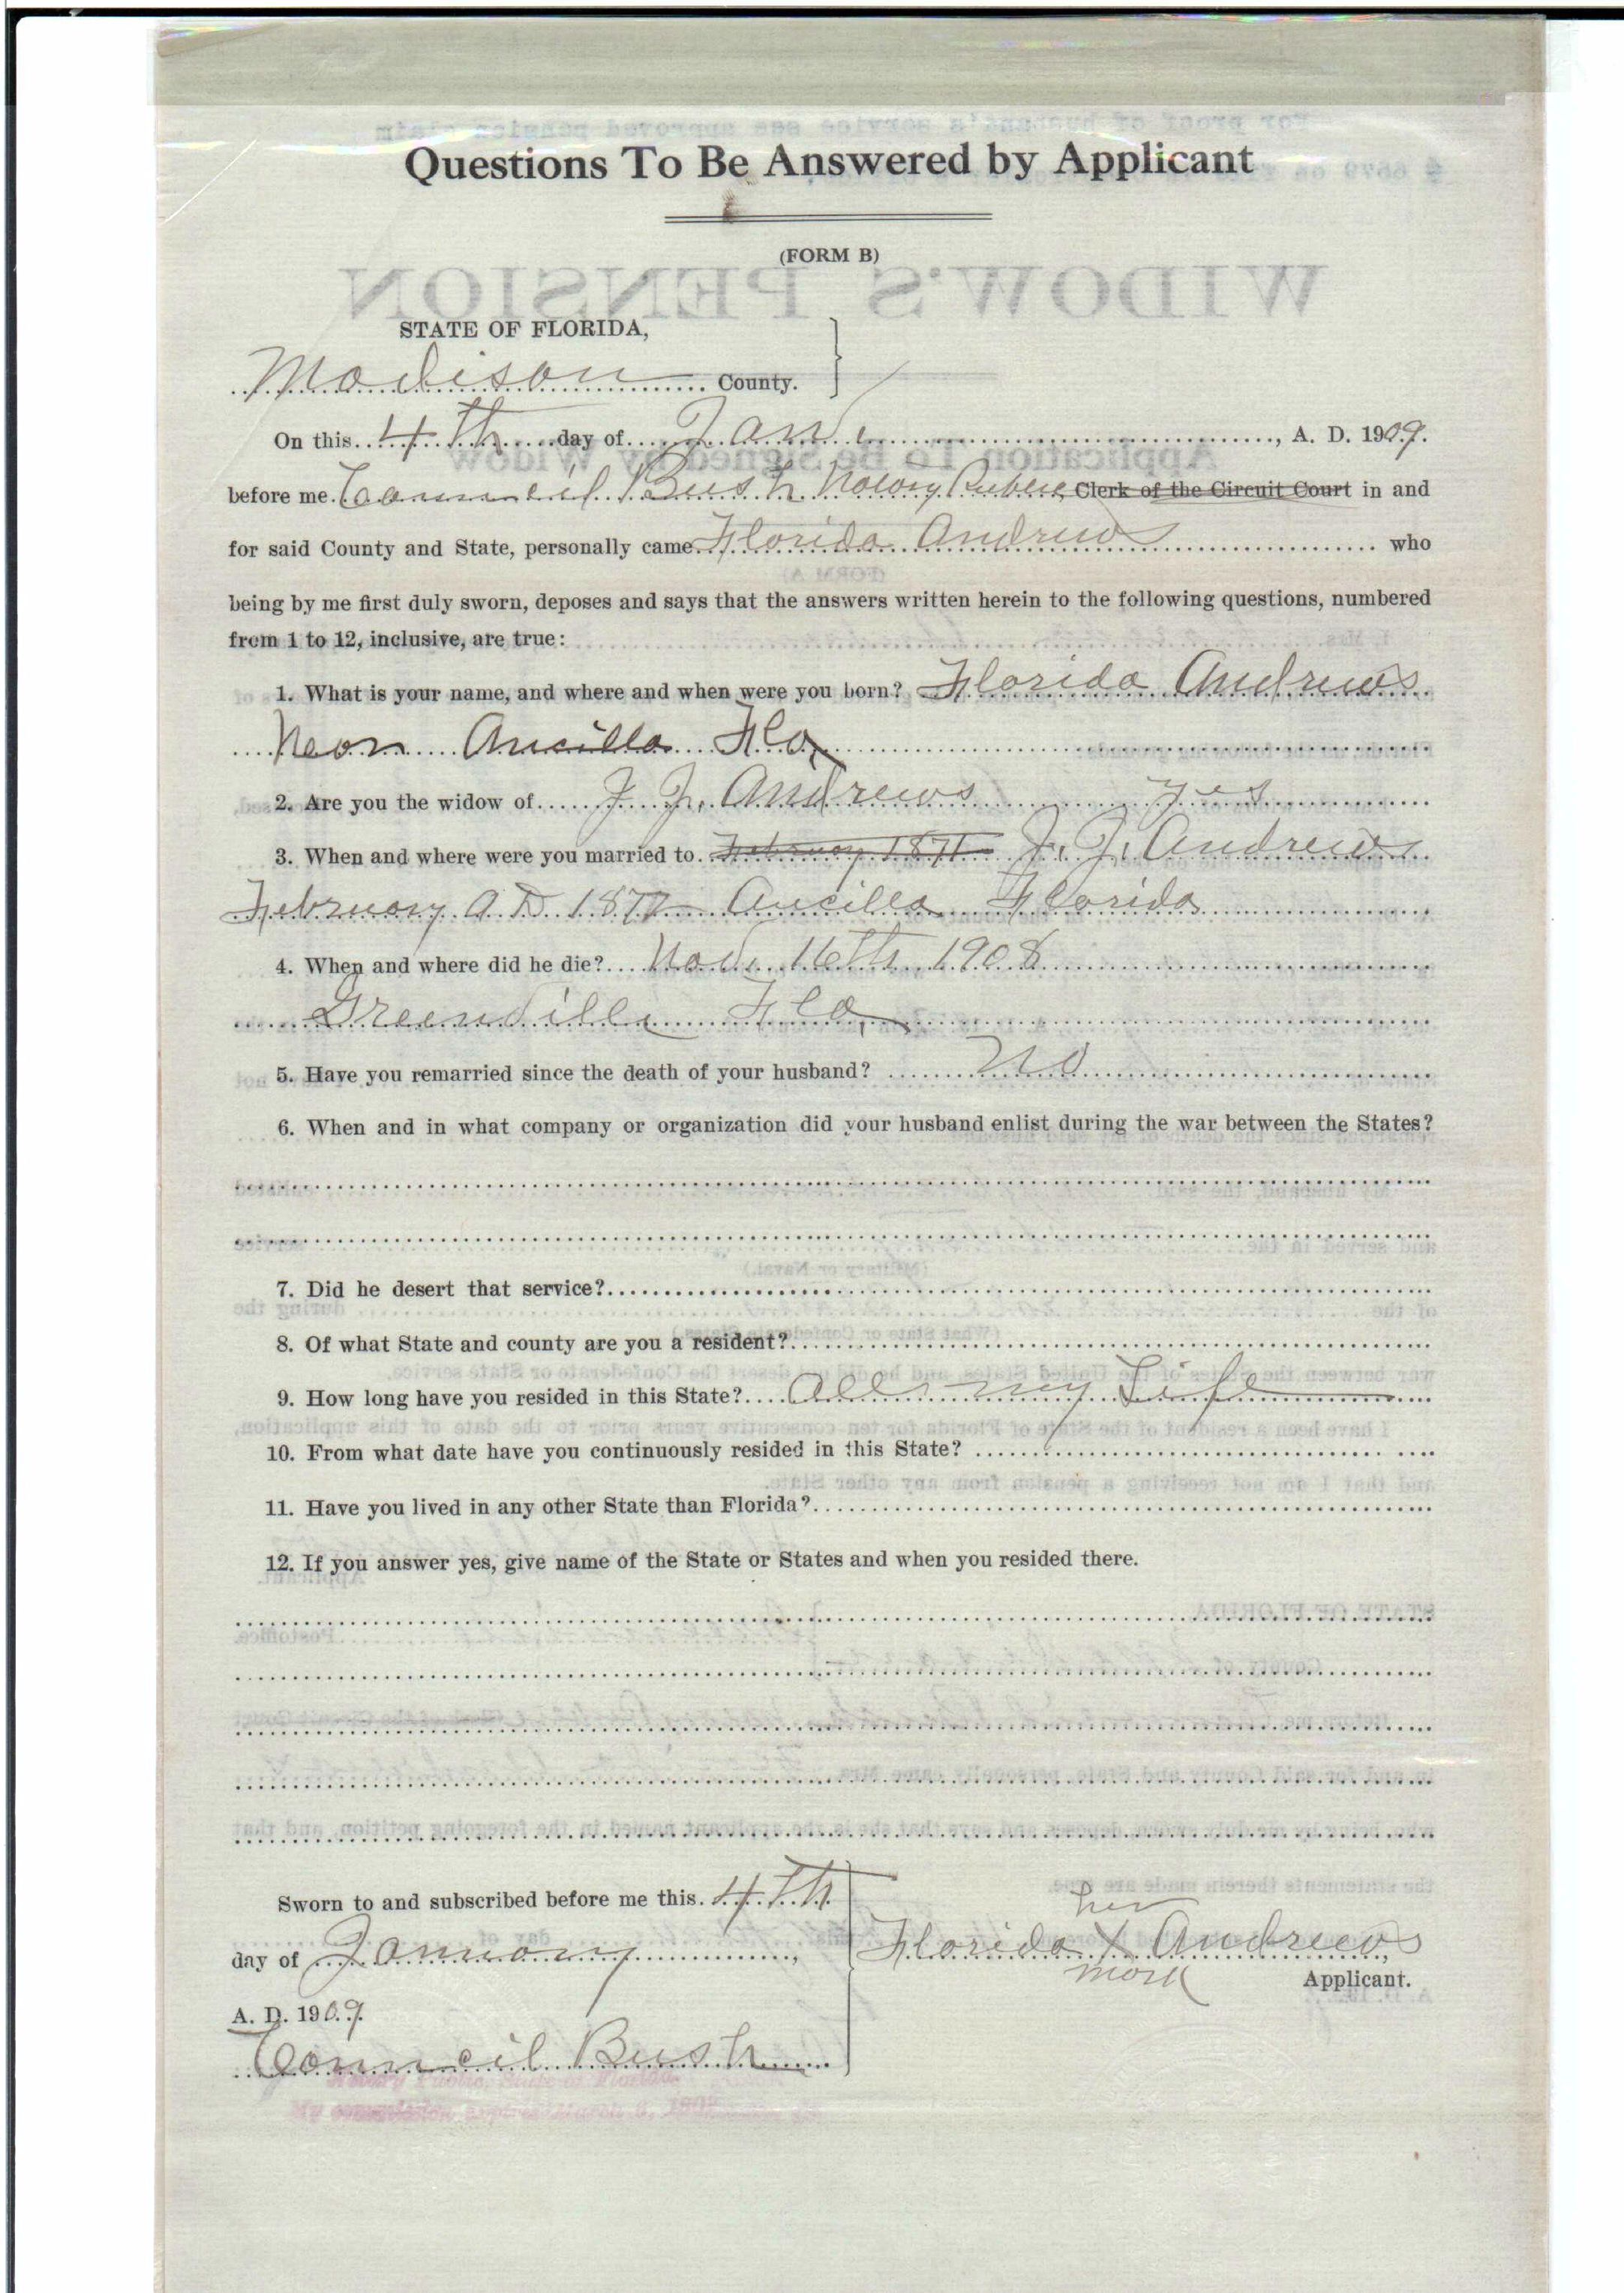 Questions To Be Answered by Applicant
(FORM B)
STATE OF FLORIDA,
Madison County.
On this 4th day of Jan, A. D. 1909.
before me Council Bush Notary Public, Clerk of the Circuit Court in and
for said County and State, personally came Florida Andrews who
being by me first duly sworn, deposes and says that the answers written herein to the following questions, numbered
from 1 to 12, inclusive, are true:
1. What is your name, and where and when were you born? Florida Andrews
Near Aucilla Fla,
2. Are you the widow of J. J. Andrews yes
3. When and where were you married to February 1871 J. J. Andrews
February A. D. Aucilla Florida
4. When and where did he die? Nov. 16th 1908
Greenville Fla,
5. Have you remarried since the death of your husband? No
6. When and in what company or organization did your husband enlist during the war between the States?
7. Did he desert that service?
8. Of what State and county are you a resident?
9. How long have you resided in this State? All my Life
10. From what date have you continuously resided in this State?
11. Have you lived in any other State than Florida?
12. If you answer yes, give name of the State or States and when you resided there.
Sworn to and subscribed before me this 4th
day of January,
A. D. 1909.
Council Bush
Notary Public, State of Florida.
her
Florida X Andrews,
mark
Applicant.